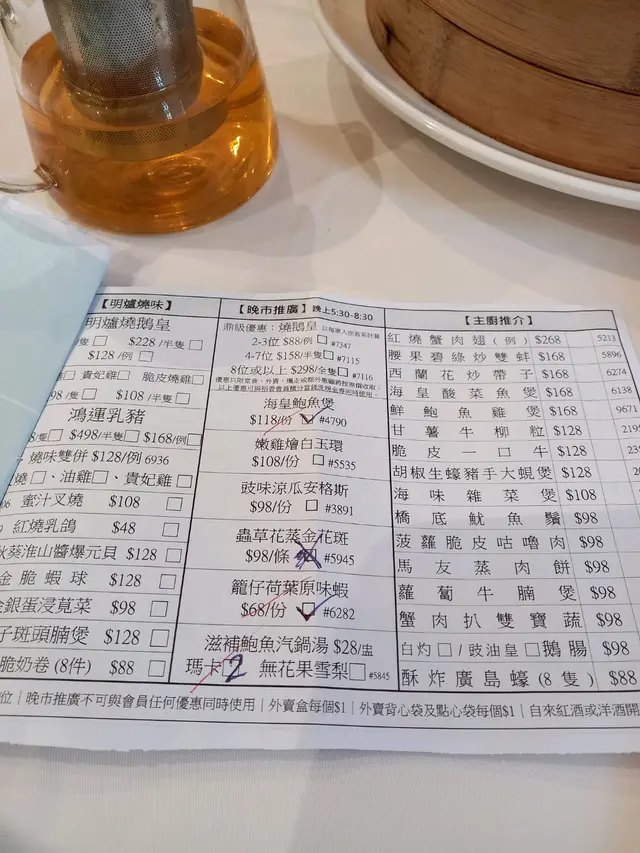 【明爐燒味】
明爐燒鵝皇
隻□ $228/半隻□
$128/例□
□ 貴妃雞□ 脆皮燒雞□
98/隻□ $108/半隻□
鴻運乳豬
8/隻□ $498/半隻□ $168/例□
燒味雙併 $128/例 6936
燒□、油雞□、貴妃雞□
蜜汁叉燒 $108 □
紅燒乳鴿 $48 □
秋葵淮山醬爆元貝 $128 □
金脆蝦球 $128 □
金銀蛋浸莧菜 $98 □
子斑頭腩煲 $128 □
脆奶卷(8件) $88 □
【晚市推廣】晚上5:30-8:30
鼎級優惠：燒鵝皇 以每單人座茗茶計算
2-3位 $88/例 □ #7347
4-7位 $158/半隻 □ #7115
8位或以上 $298/隻 □ #7116
海皇鮑魚煲
$118/份 □ #4790
嫩雞燴白玉環
$108/份 □ #5535
豉味涼瓜安格斯
$98/份 □ #3891
蟲草花蒸金花斑
$98/條 #5945
籠仔荷葉原味蝦
$68/份 □ #6282
滋補鮑魚汽鍋湯 $28/盅
瑪卡 2 無花果雪梨□ #5845
【主廚推介】
紅燒蟹肉翅(例) $268 5213
腰果碧綠炒雙蚌 $168 5896
西蘭花炒帶子 $168 6274
海皇酸菜魚煲 $168 6138
鮮鮑魚雞煲 $168 9671
甘薯牛柳粒 $128
脆皮一口牛 $128
胡椒生蠔豬手大蜆煲 $128
海味雜菜煲 $108
橋底魷魚鬚 $98
菠蘿脆皮咕嚕肉 $98
馬友蒸肉餅 $98
蘿蔔牛腩煲 $98
蟹肉扒雙寶蔬 $98
白灼□/豉油皇□鵝腸 $98
酥炸廣島蠔(8隻) $88
位｜晚市推廣不可與會員任何優惠同時使用｜外賣盒每個$1｜外賣背心袋及點心袋每個$1｜自來紅酒或洋酒開